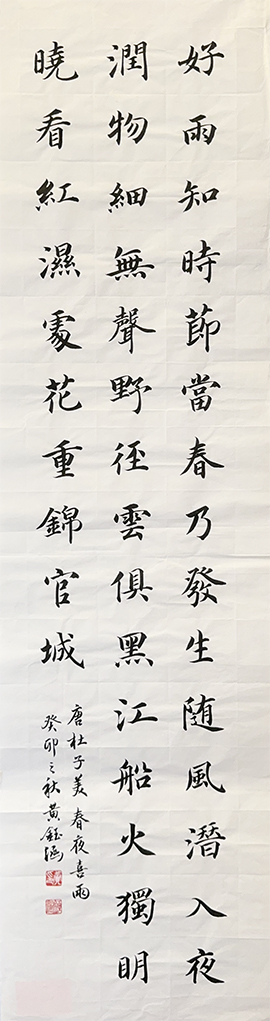 好雨知時節當春乃發生随風潛入夜
潤物細無聲野徑雲俱黑江船火獨明
曉看紅濕處花重錦官城
唐杜子美春夜喜雨
癸卯之秋黄鈺涵